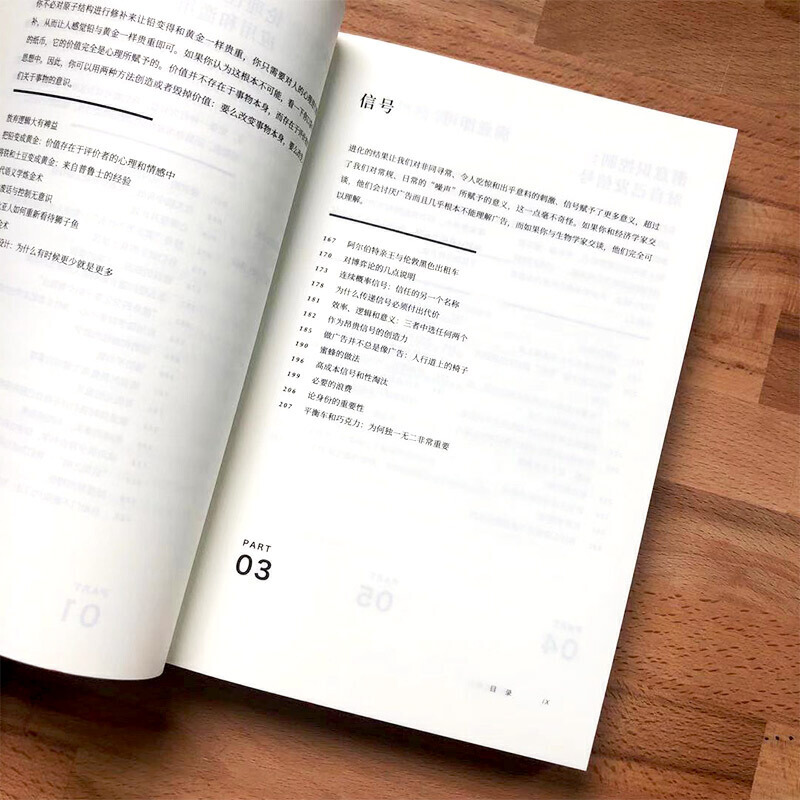 你不必对原子结构进行修补来让铅变得和黄金一样贵重，你只需要对人的心理
补，从而让人感觉铅与黄金一样贵重即可。如果你认为这根本不可能，看一下你
的纸币，它的价值完全是心理所赋予的。价值并不存在于事物本身，而存在于评价
思想中。因此，你可以用两种方法创造或者毁掉价值：要么改变事物本身，要么改变
们关于事物的意识。
教育逻辑大有裨益
把铅变成黄金：价值存在于评价者的心理和情感中
将铁和土豆变成黄金：来自普鲁士的经验
代语义学炼金术
废话与控制无意识
亚人如何重新看待狮子鱼
金术
设计：为什么有时候更少就是更多
PART
01
信号
进化的结果让我们对非同寻常、令人吃惊和出乎意料的刺激、信号赋予了更多意义，超过
了我们对常规、日常的“噪声”所赋予的意义，这一点毫不奇怪。如果你和经济学家交
谈，他们会讨厌广告而且几乎根本不能理解广告，而如果你与生物学家交谈，他们完全可
以理解。
167 阿尔伯特亲王与伦敦黑色出租车
170 对博弈论的几点说明
173 连续概率信号：信任的另一个名称
178 为什么传递信号必须付出代价
181 效率、逻辑和意义：三者中选任何两个
182 作为昂贵信号的创造力
185 做广告并不总是像广告：人行道上的椅子
190 蜜蜂的做法
196 高成本信号和性淘汰
199 必要的浪费
206 论身份的重要性
207 平衡车和巧克力：为何独一无二非常重要
PART
03
PART
05
PART
04
目 录 ix